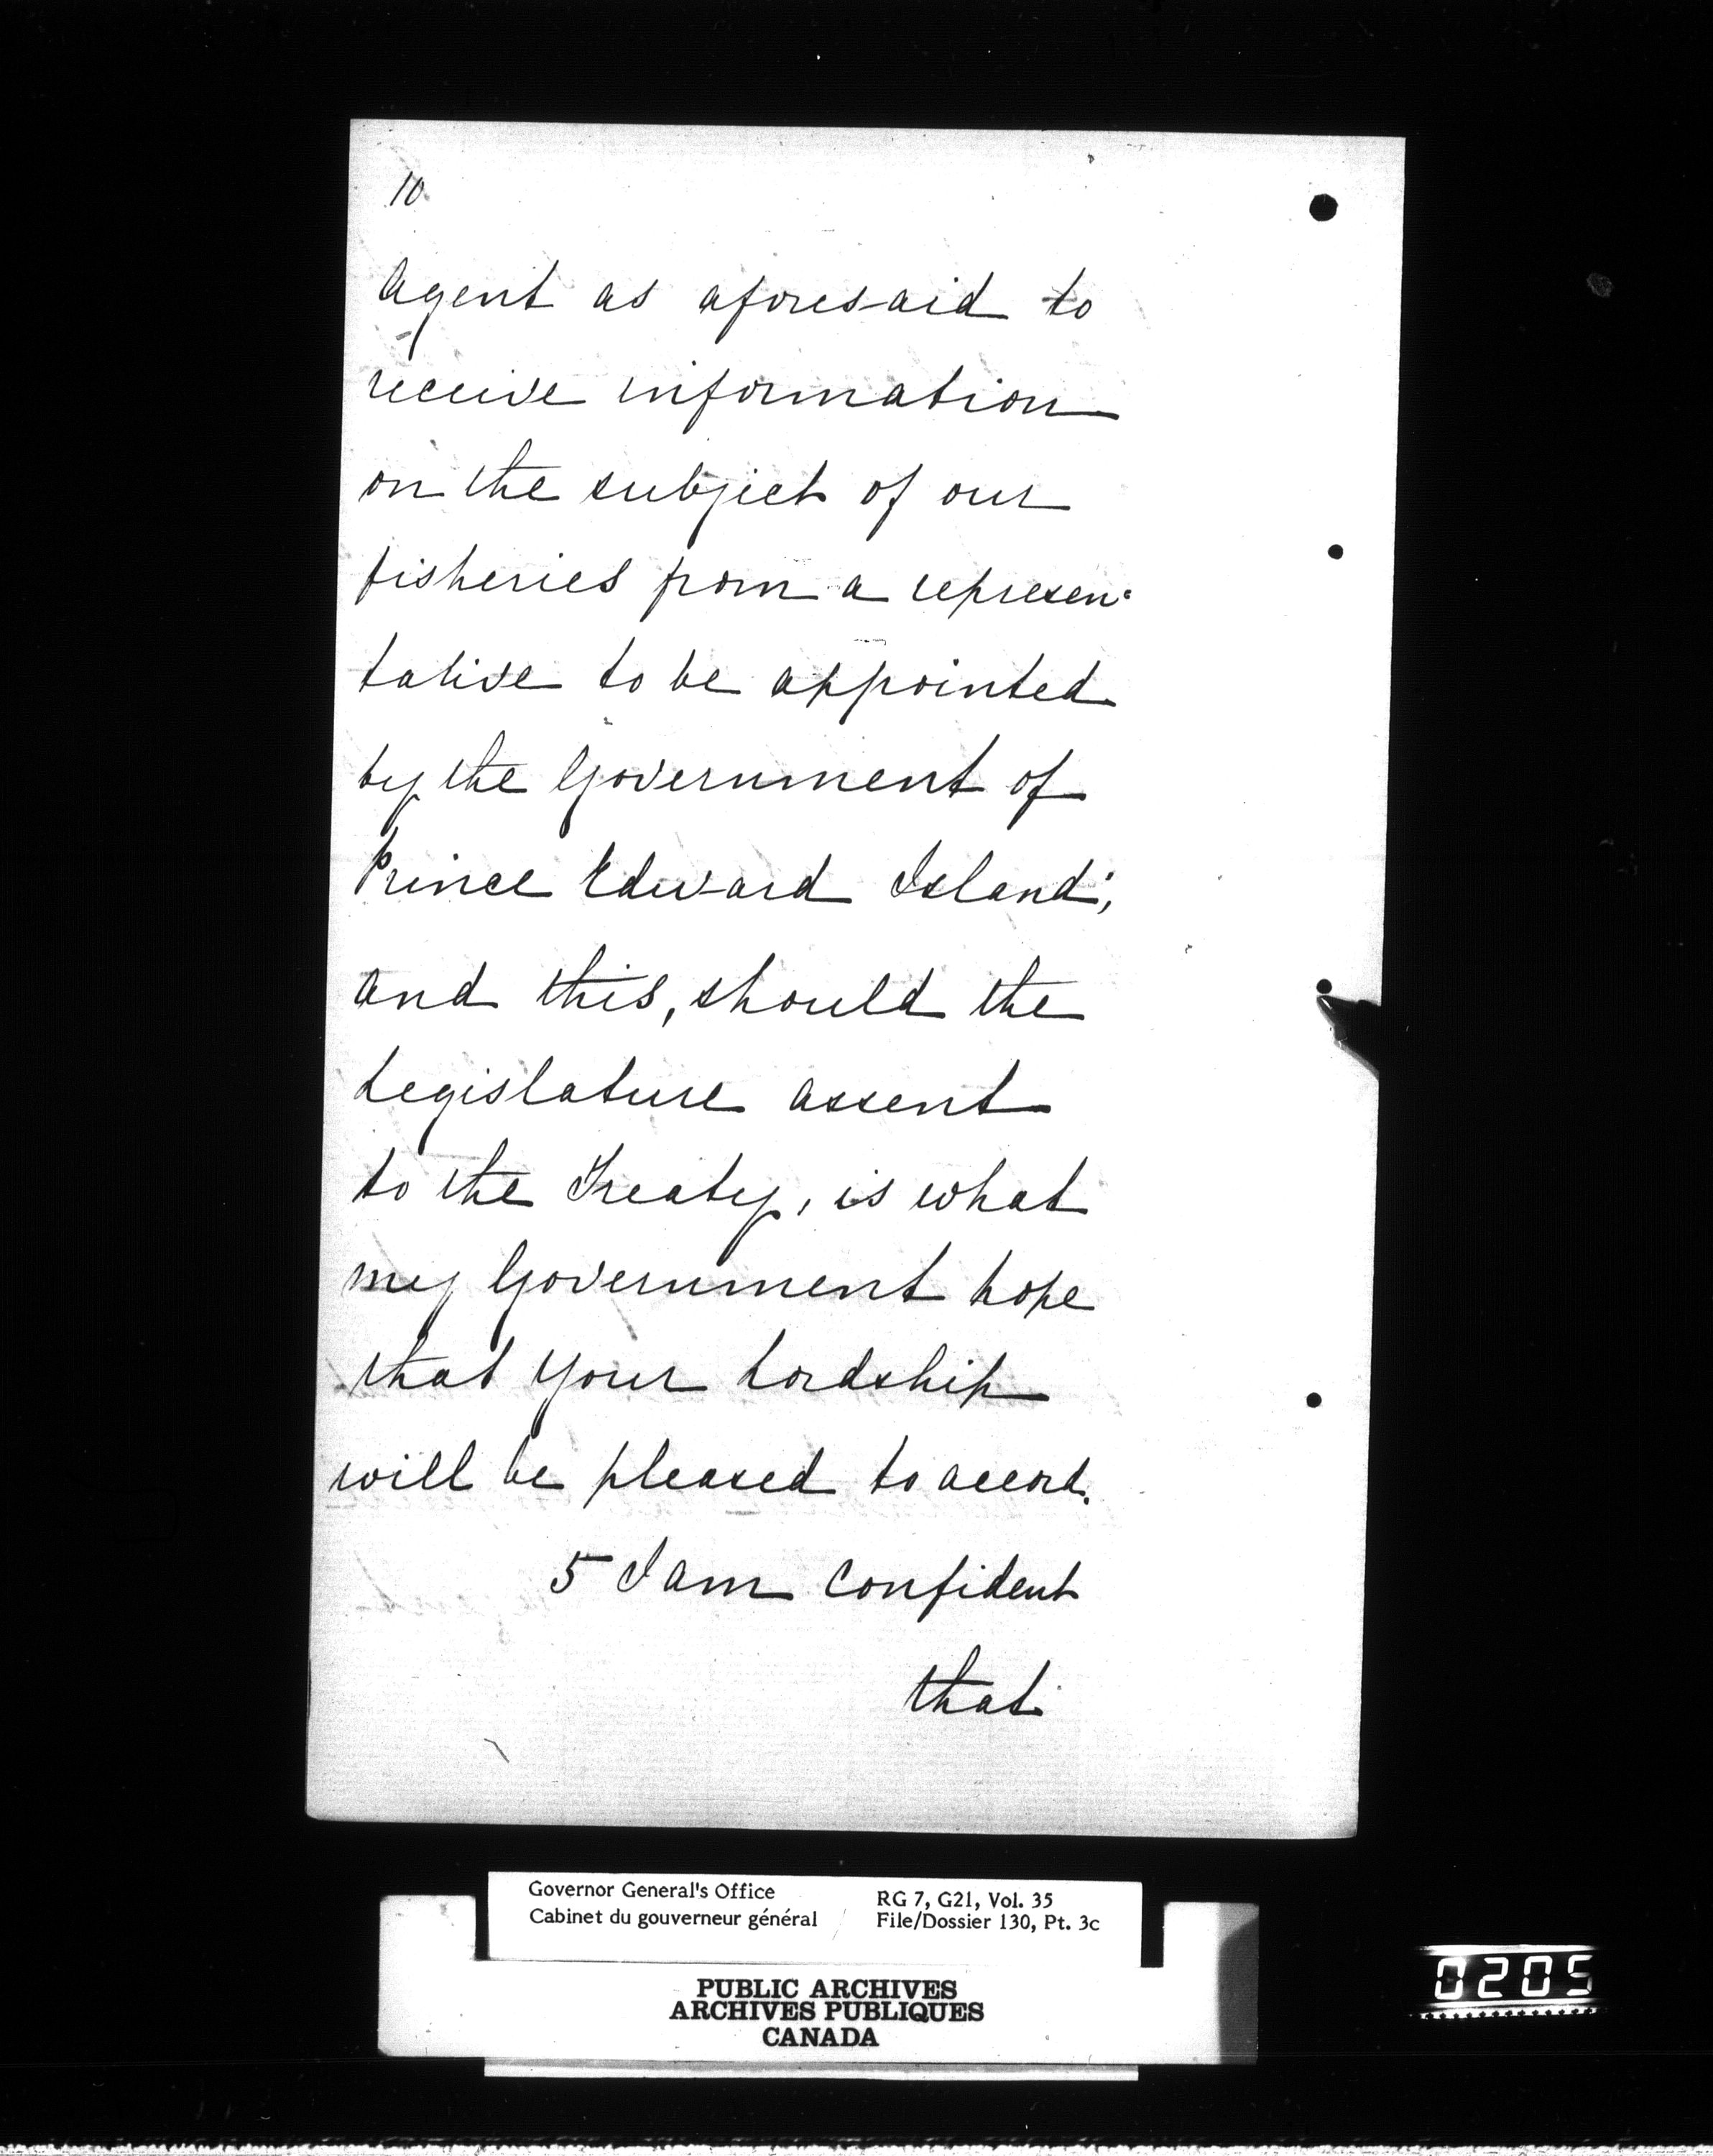 10
Agent as aforesaid to
receive information
on the subject of our
fisheries from a represen-
tative to be appointed
by the Government of
Prince Edward Island;
and this, should the
Legislature assent
to the Treaty, is what
my Government hope
that Your Lordship
will be pleased to accord.
5 I am confident
that
Governor General's Office
Cabinet du gouverneur général
RG 7, G21, Vol. 35
File/Dossier 130, Pt. 3c
PUBLIC ARCHIVES
ARCHIVES PUBLIQUES
CANADA
0205